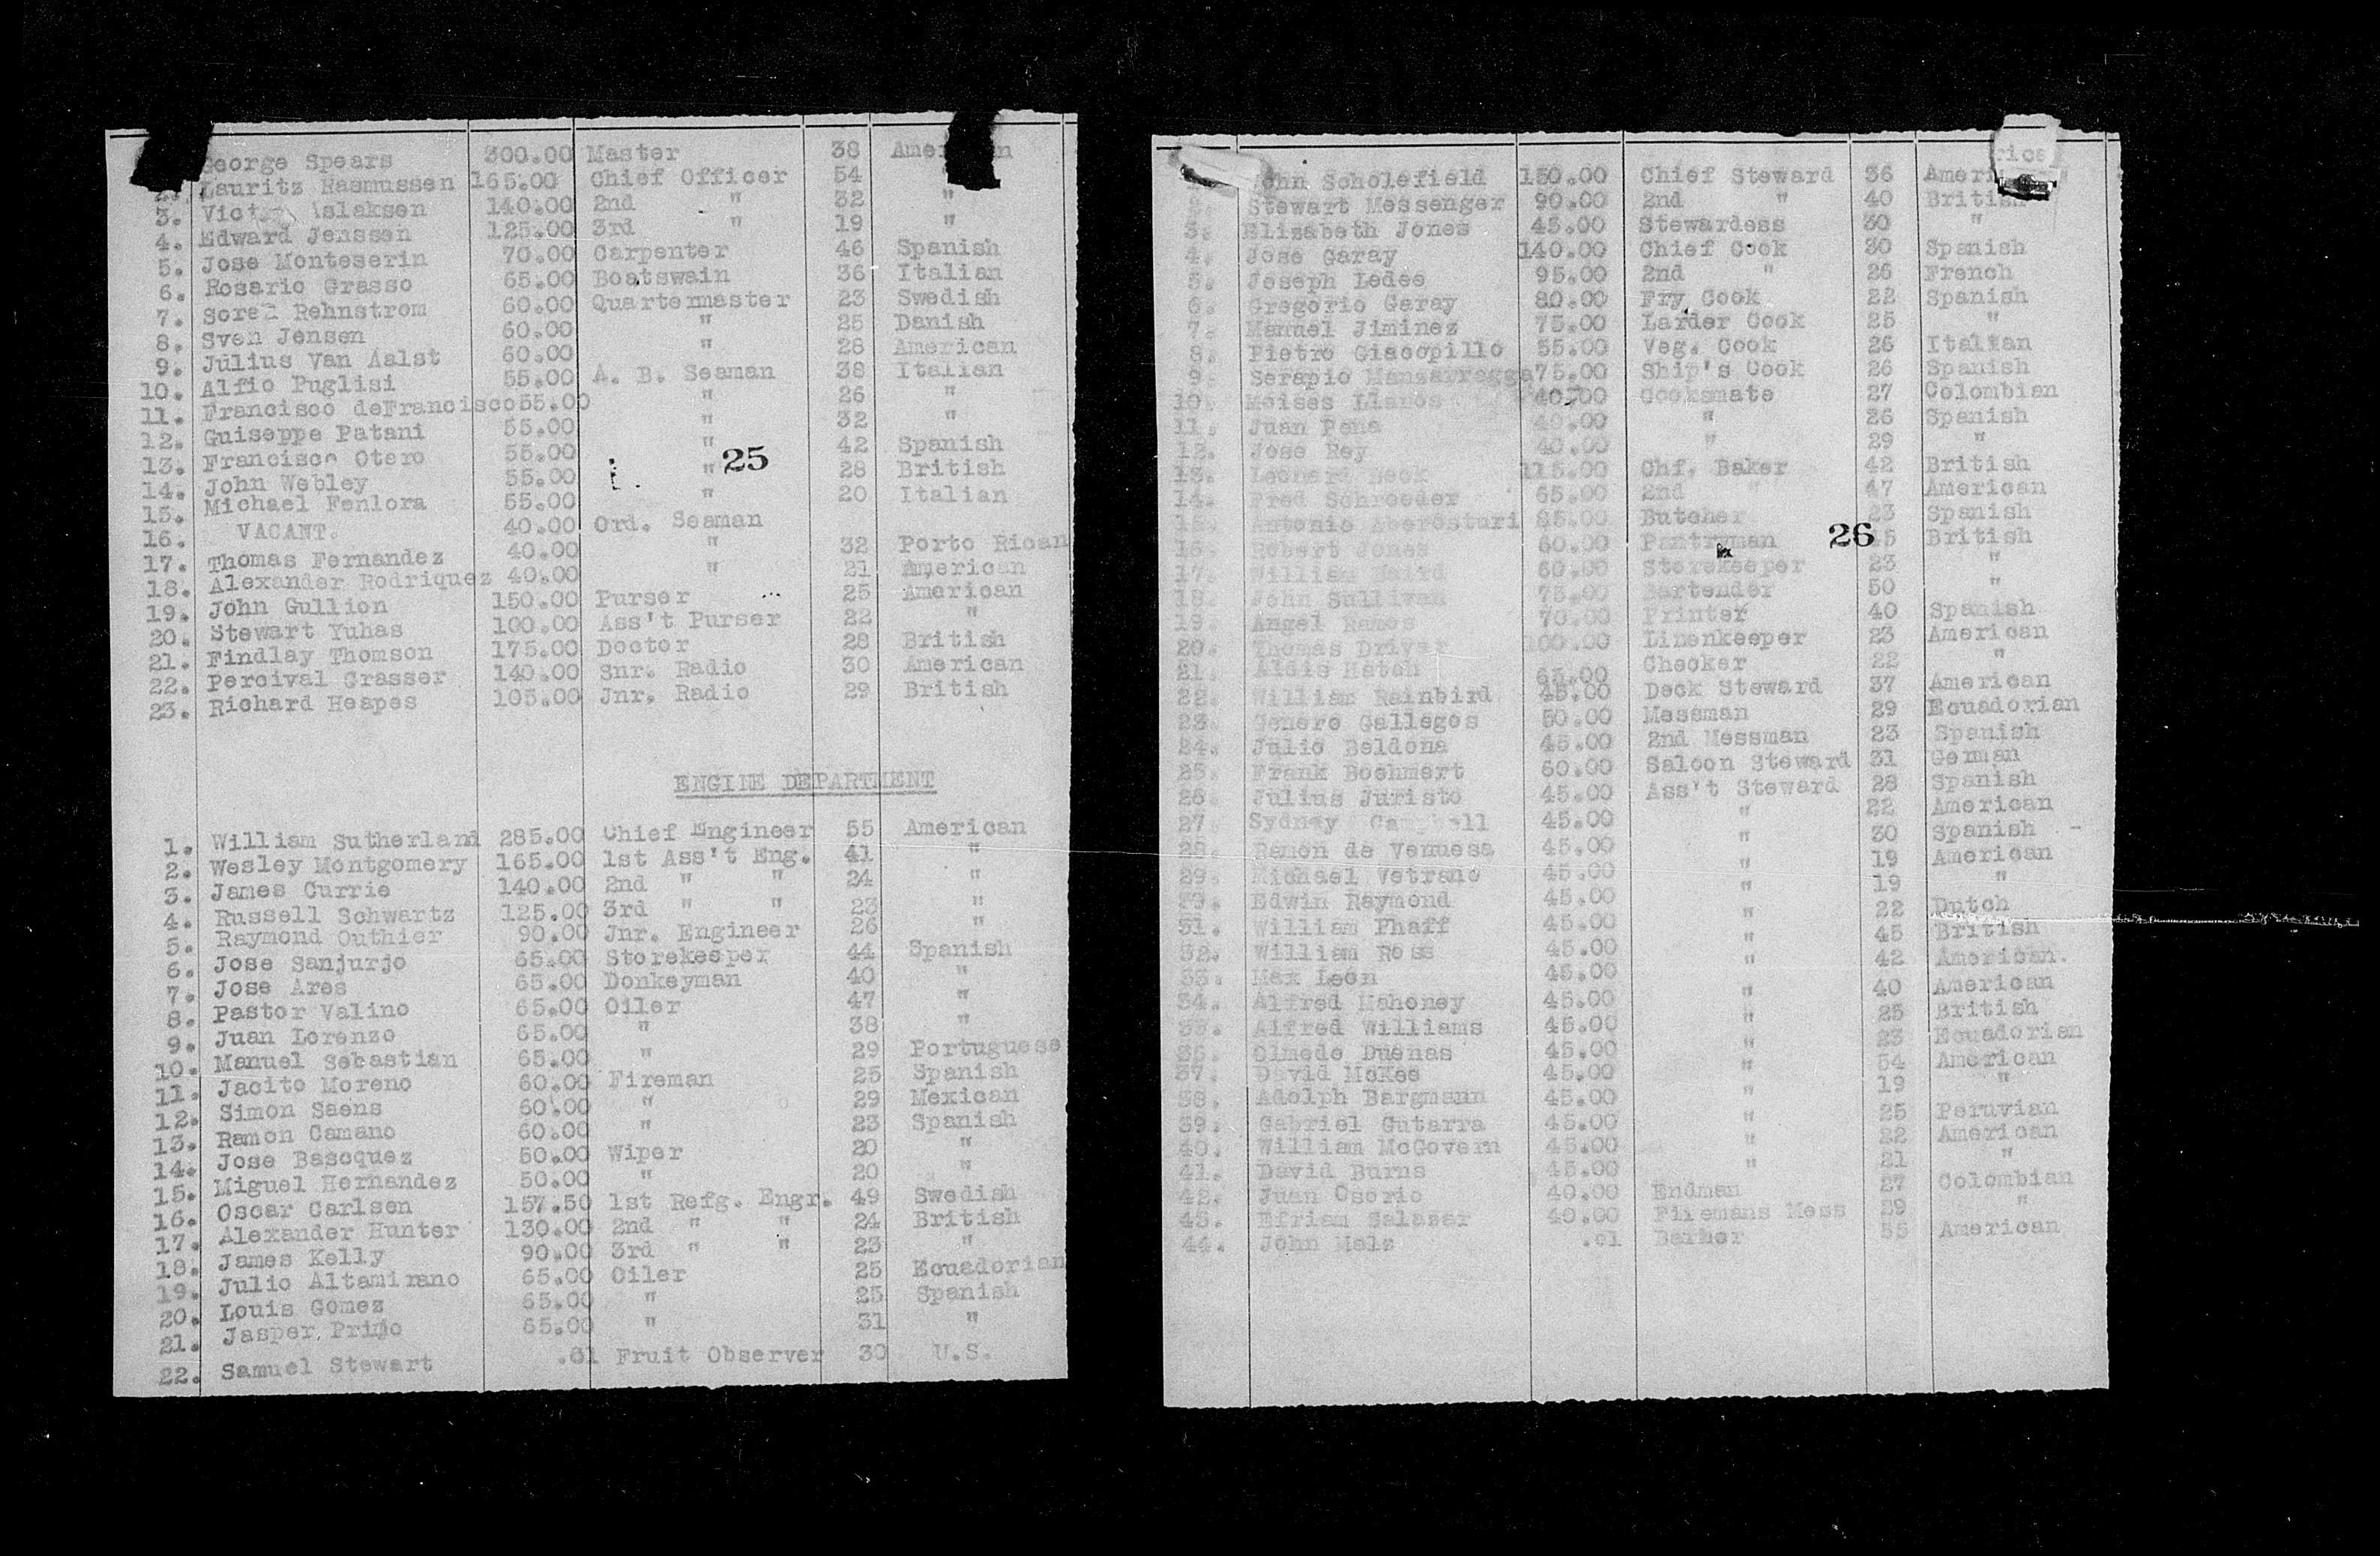 George Spears 300.00 Master 38
2. Lauritz Rasmussen 165.00 Chief Officer 54
3. 140.00 2nd " 32 "
4. Edward Jenssen 125.00 3rd " 19 "
5. Jose Monteserin 70.00 Carpenter 46 Spanish
6. Rosario Grasso 65.00 Boatswain 36 Italian
7. Rehnstrom 60.00 Quartermaster 23 Swedish
8. Sven Jensen 60.00 " 25 Danish
9. Julius Van Aalst 60.00 " 28 American
10. Alfio Puglisi 55.00 A. B. Seaman 38 Italian
11. Francisco deFrancisco 55.00 " 26 "
12. Guiseppe Patani 55.00 " 32 "
13. Francisco Otero 55.00 " 42 Spanish
14. John Webley 55.00 " 28 British
15. Michael Fenlora 55.00 " 20 Italian
16. VACANT. 40.00 Ord. Seaman
17. Thomas Fernandez 40.00 " 32 Porto Rican
18. Alexander Rodriquez 40.00 " 21 American
19. John Gullion 150.00 Purser 25 American
20. Stewart Yuhas 100.00 Ass't Purser 22 "
21. Findlay Thomson 175.00 Doctor 28 British
22. Percival Grasser 140.00 Snr. Radio 30 American
23. Richard Heapes 105.00 Jnr. Radio 29 British
25
ENGINE DEPARTMENT
1. William Sutherland 285.00 Chief Engineer 55 American
2. Wesley Montgomery 165.00 1st Ass't Eng. 41 "
3. James Currie 140.00 2nd " " 24 "
4. Russell Schwartz 125.00 3rd " " 23 "
5. Raymond Outhier 90.00 Jnr. Engineer 26 "
6. Jose Sanjurjo 65.00 Storekeeper 44 Spanish
7. Jose Ares 65.00 Donkeyman 40 "
8. Pastor Valino 65.00 Oiler 47 "
9. Juan Lorenzo 65.00 " 38 "
10. Manuel Sebastian 65.00 " 29 Portuguese
11. Jacito Moreno 60.00 Fireman 25 Spanish
12. Simon Saens 60.00 " 29 Mexican
13. Ramon Camano 60.00 " 23 Spanish
14. Jose Bascquez 50.00 Wiper 20 "
15. Miguel Hernandez 50.00 " 20 "
16. Oscar Carlsen 157.50 1st Refg. Engr. 49 Swedish
17. Alexander Hunter 130.00 2nd " " 24 British
18. James Kelly 90.00 3rd " " 23 "
19. Julio Altamirano 65.00 Oiler 25 Ecuadorian
20. Louis Gomez 65.00 " 25 Spanish
21. Jasper Primo 65.00 " 31 "
22. Samuel Stewart .01 Fruit Observer 30 U.S.
John Scholefield 150.00 Chief Steward 36
2. Stewart Messenger 90.00 2nd " 40 British
3. Elizabeth Jones 45.00 Stewardess 30 "
4. Jose Garay 140.00 Chief Cook 30 Spanish
5. Joseph Ledee 95.00 2nd " 26 French
6. Gregorio Garay 80.00 Fry Cook 22 Spanish
7. Manuel Jiminez 75.00 Larder Cook 25 "
8. Pietro Giacopillo 55.00 Veg. Cook 26 Italian
9. Serapio Mansarregga 75.00 Ship's Cook 26 Spanish
10. Moises Llanos 40.00 Cooksmate 27 Colombian
11. Juan Pena 40.00 " 26 Spanish
12. Jose Rey 40.00 " 29 "
13. Leonard Beck 115.00 Chf. Baker 42 British
14. Fred Schroeder 65.00 2nd " 47 American
15. Antonio Aberosturi 85.00 Butcher 23 Spanish
16. Robert Jones 60.00 Pantryman British
17. William Baird 60.00 Storekeeper 23 "
18. John Sullivan 75.00 Bartender 50 "
19. Angel Ramos 70.00 Printer 40 Spanish
20. Thomas Driver 100.00 Linenkeeper 23 American
21. Aldis Hatch 65.00 Checker 22 "
22. William Rainbird 45.00 Deck Steward 37 American
23. Genero Gallegos 50.00 Messman 29 Ecuadorian
24. Julio Beldona 45.00 2nd Messman 23 Spanish
25. Frank Boehmert 60.00 Saloon Steward 31 German
26. Julius Juristo 45.00 Ass't Steward 28 Spanish
27. Sydney 45.00 " 22 American
28. Ramon de Venuesa 45.00 " 30 Spanish
29. Michael Vetrano 45.00 " 19 American
30. Edwin Raymond 45.00 " 19 "
31. William Phaff 45.00 " 22 Dutch
32. William Ross 45.00 " 45 British
33. Max Leon 45.00 " 42 American.
34. Alfred Mahoney 45.00 " 40 American
35. Alfred Williams 45.00 " 25 British
36. Olmedo Duenas 45.00 " 23 Ecuadorian
37. David McKee 45.00 " 54 American
38. Adolph Bargmann 45.00 " 19 "
39. Gabriel Gutarra 45.00 " 25 Peruvian
40. William McGovern 45.00 " 22 American
41. David Burns 45.00 " 21 "
42. Juan Osorio 40.00 Endman 27 Colombian
43. Efriam Salazar 40.00 Firemans Mess 29 "
44. John Melz .01 Barber 55 American
26